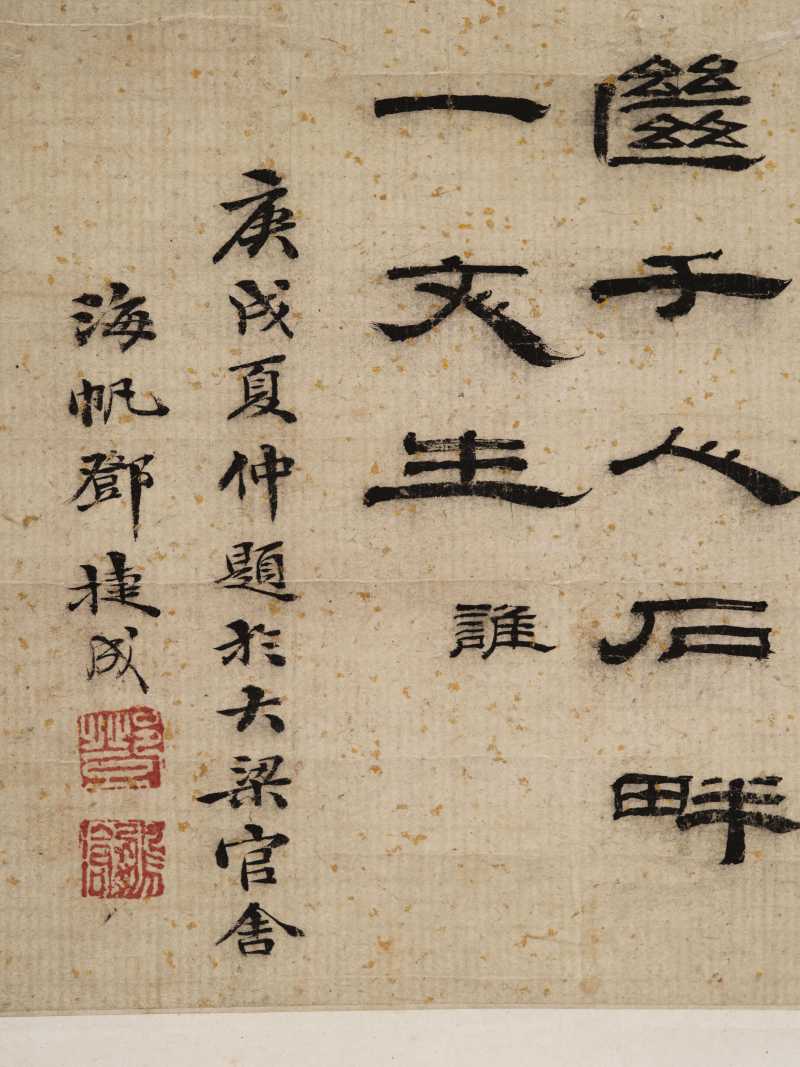 㡭子人石畔
一文生
誰
庚戌夏仲題於大梁官舍
海帆鄧捷成